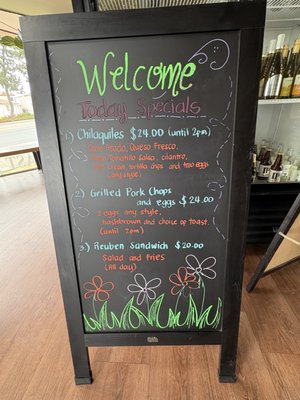 Welcome
Today Specials
1) Chilaquiles $24.00 (until 2pm)
Queso Fresco,
Tomatillo Salsa, cilantro,
tortilla chips and two eggs
(any style)
2) Grilled Pork Chops
and eggs $24.00
2 eggs any style,
hashbrown and choice of toast.
(until 2pm)
3) Reuben Sandwich $20.00
Salad and fries
(All day)